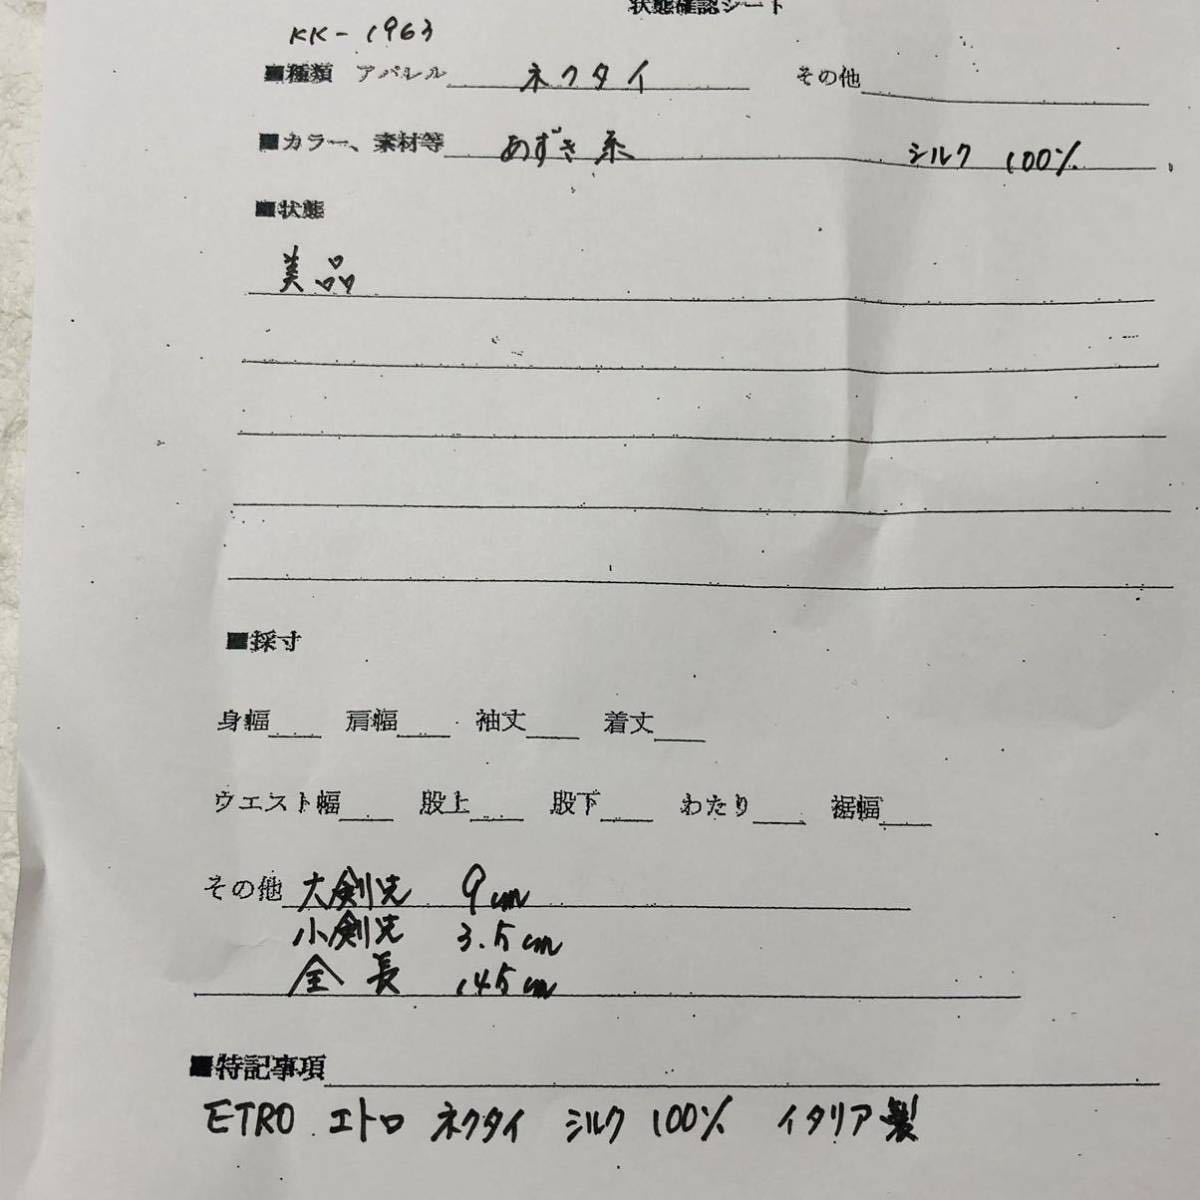 状態確認シート
KK-1963
■種類 アパレル ネクタイ その他
■カラー、素材等 あずき系 シルク 100%
■状態
美品
■採寸
身幅 肩幅 袖丈 着丈
ウエスト幅 股上 股下 わたり 裾幅
その他 大剣先 9cm
小剣先 3.5cm
全長 145cm
■特記事項
ETRO エトロ ネクタイ シルク 100% イタリア製